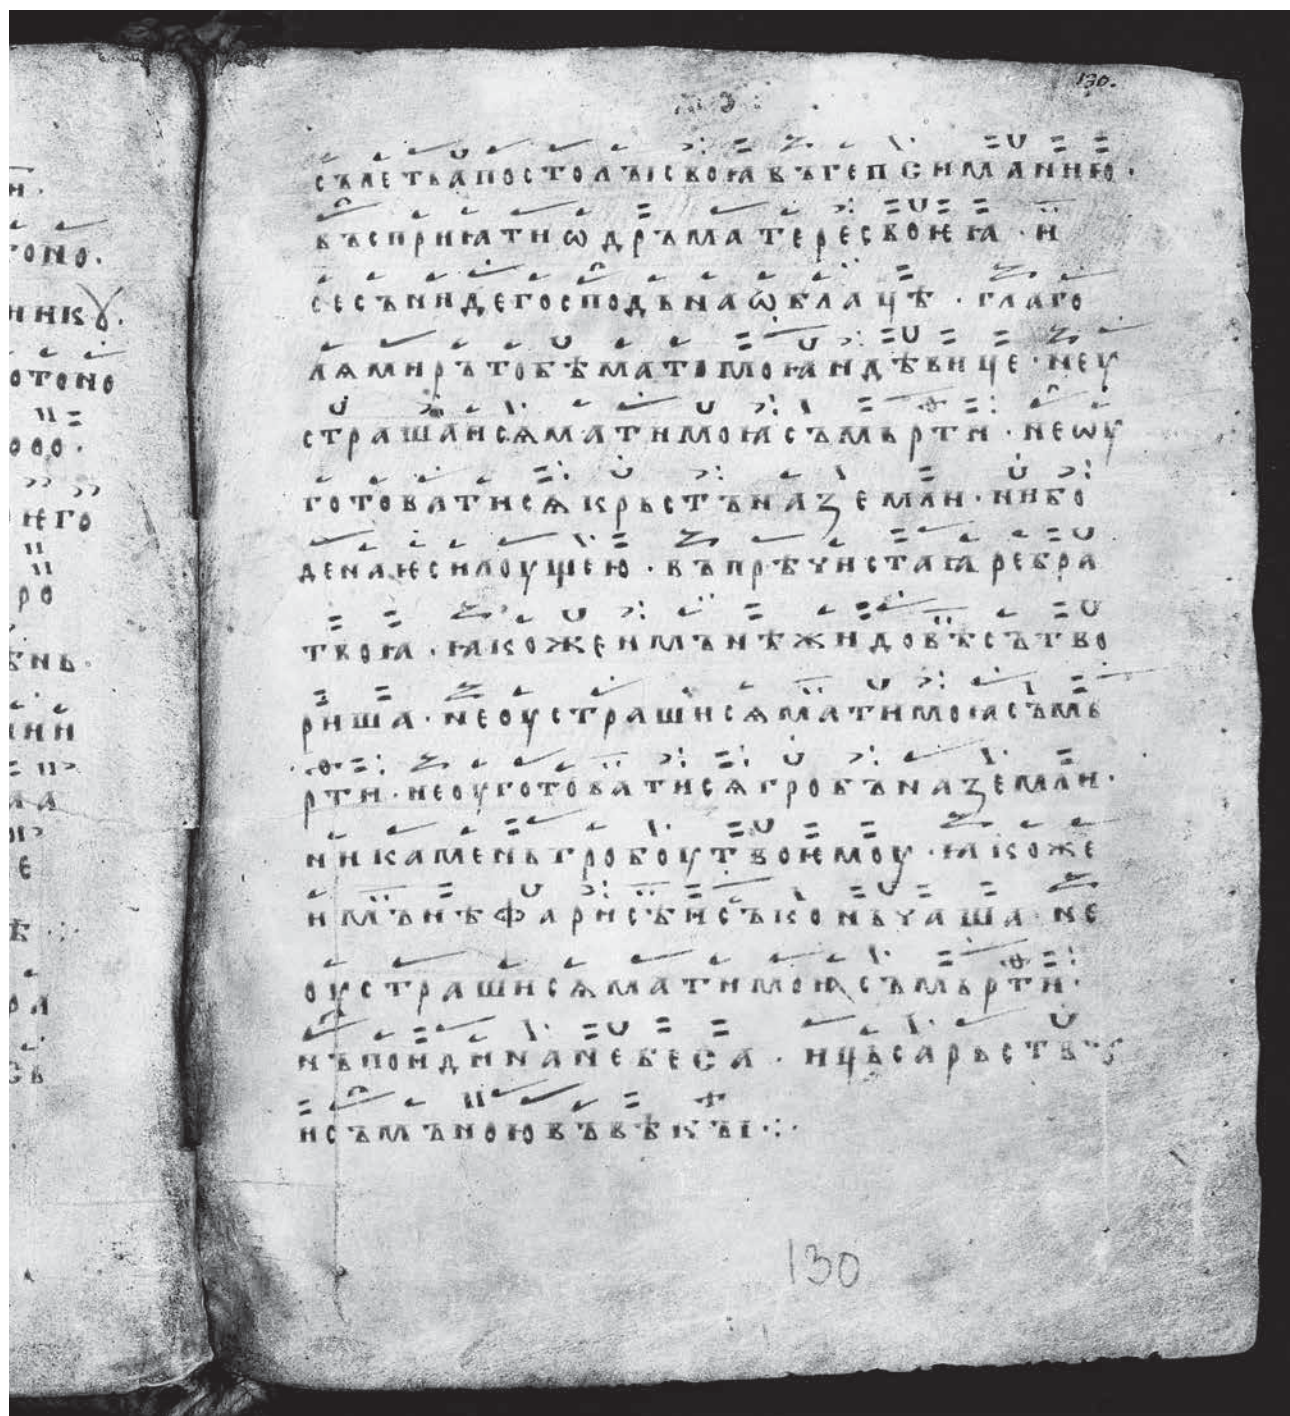 130.
н.
тоно.
ннкꙋ.
отоно
ѥго
ро
съле тъ апостолъі своꙗ въ гепсиманию.
въсприꙗти ѡдръ матере своѥꙗ · и
се съниде господь на ѡблацѣ · глаго
лѧ миръ тобѣ мати моꙗ и дѣвице · не у
страшаи сѧ мати моꙗ съмьрти · не ѡу
готовати сѧ крьстъ на земли · ни бо
дена ѥси лоущею · въ прѣчистаꙗ ребра
твоꙗ · ꙗкоже и мънѣ жидовѣ сътво
риша · не оустраши сѧ мати моꙗ съмь
рти · не оуготовати сѧ гробъ на земли ·
ни камень гробоу твоѥмоу · ꙗкоже
и мънѣ фарисѣи съконьчаша · не
оустраши сѧ мати моꙗ съмьрти ·
нъ поиди на небеса · и цѣсарьствъу
и съ мъною въ вѣкъі · : ·
130